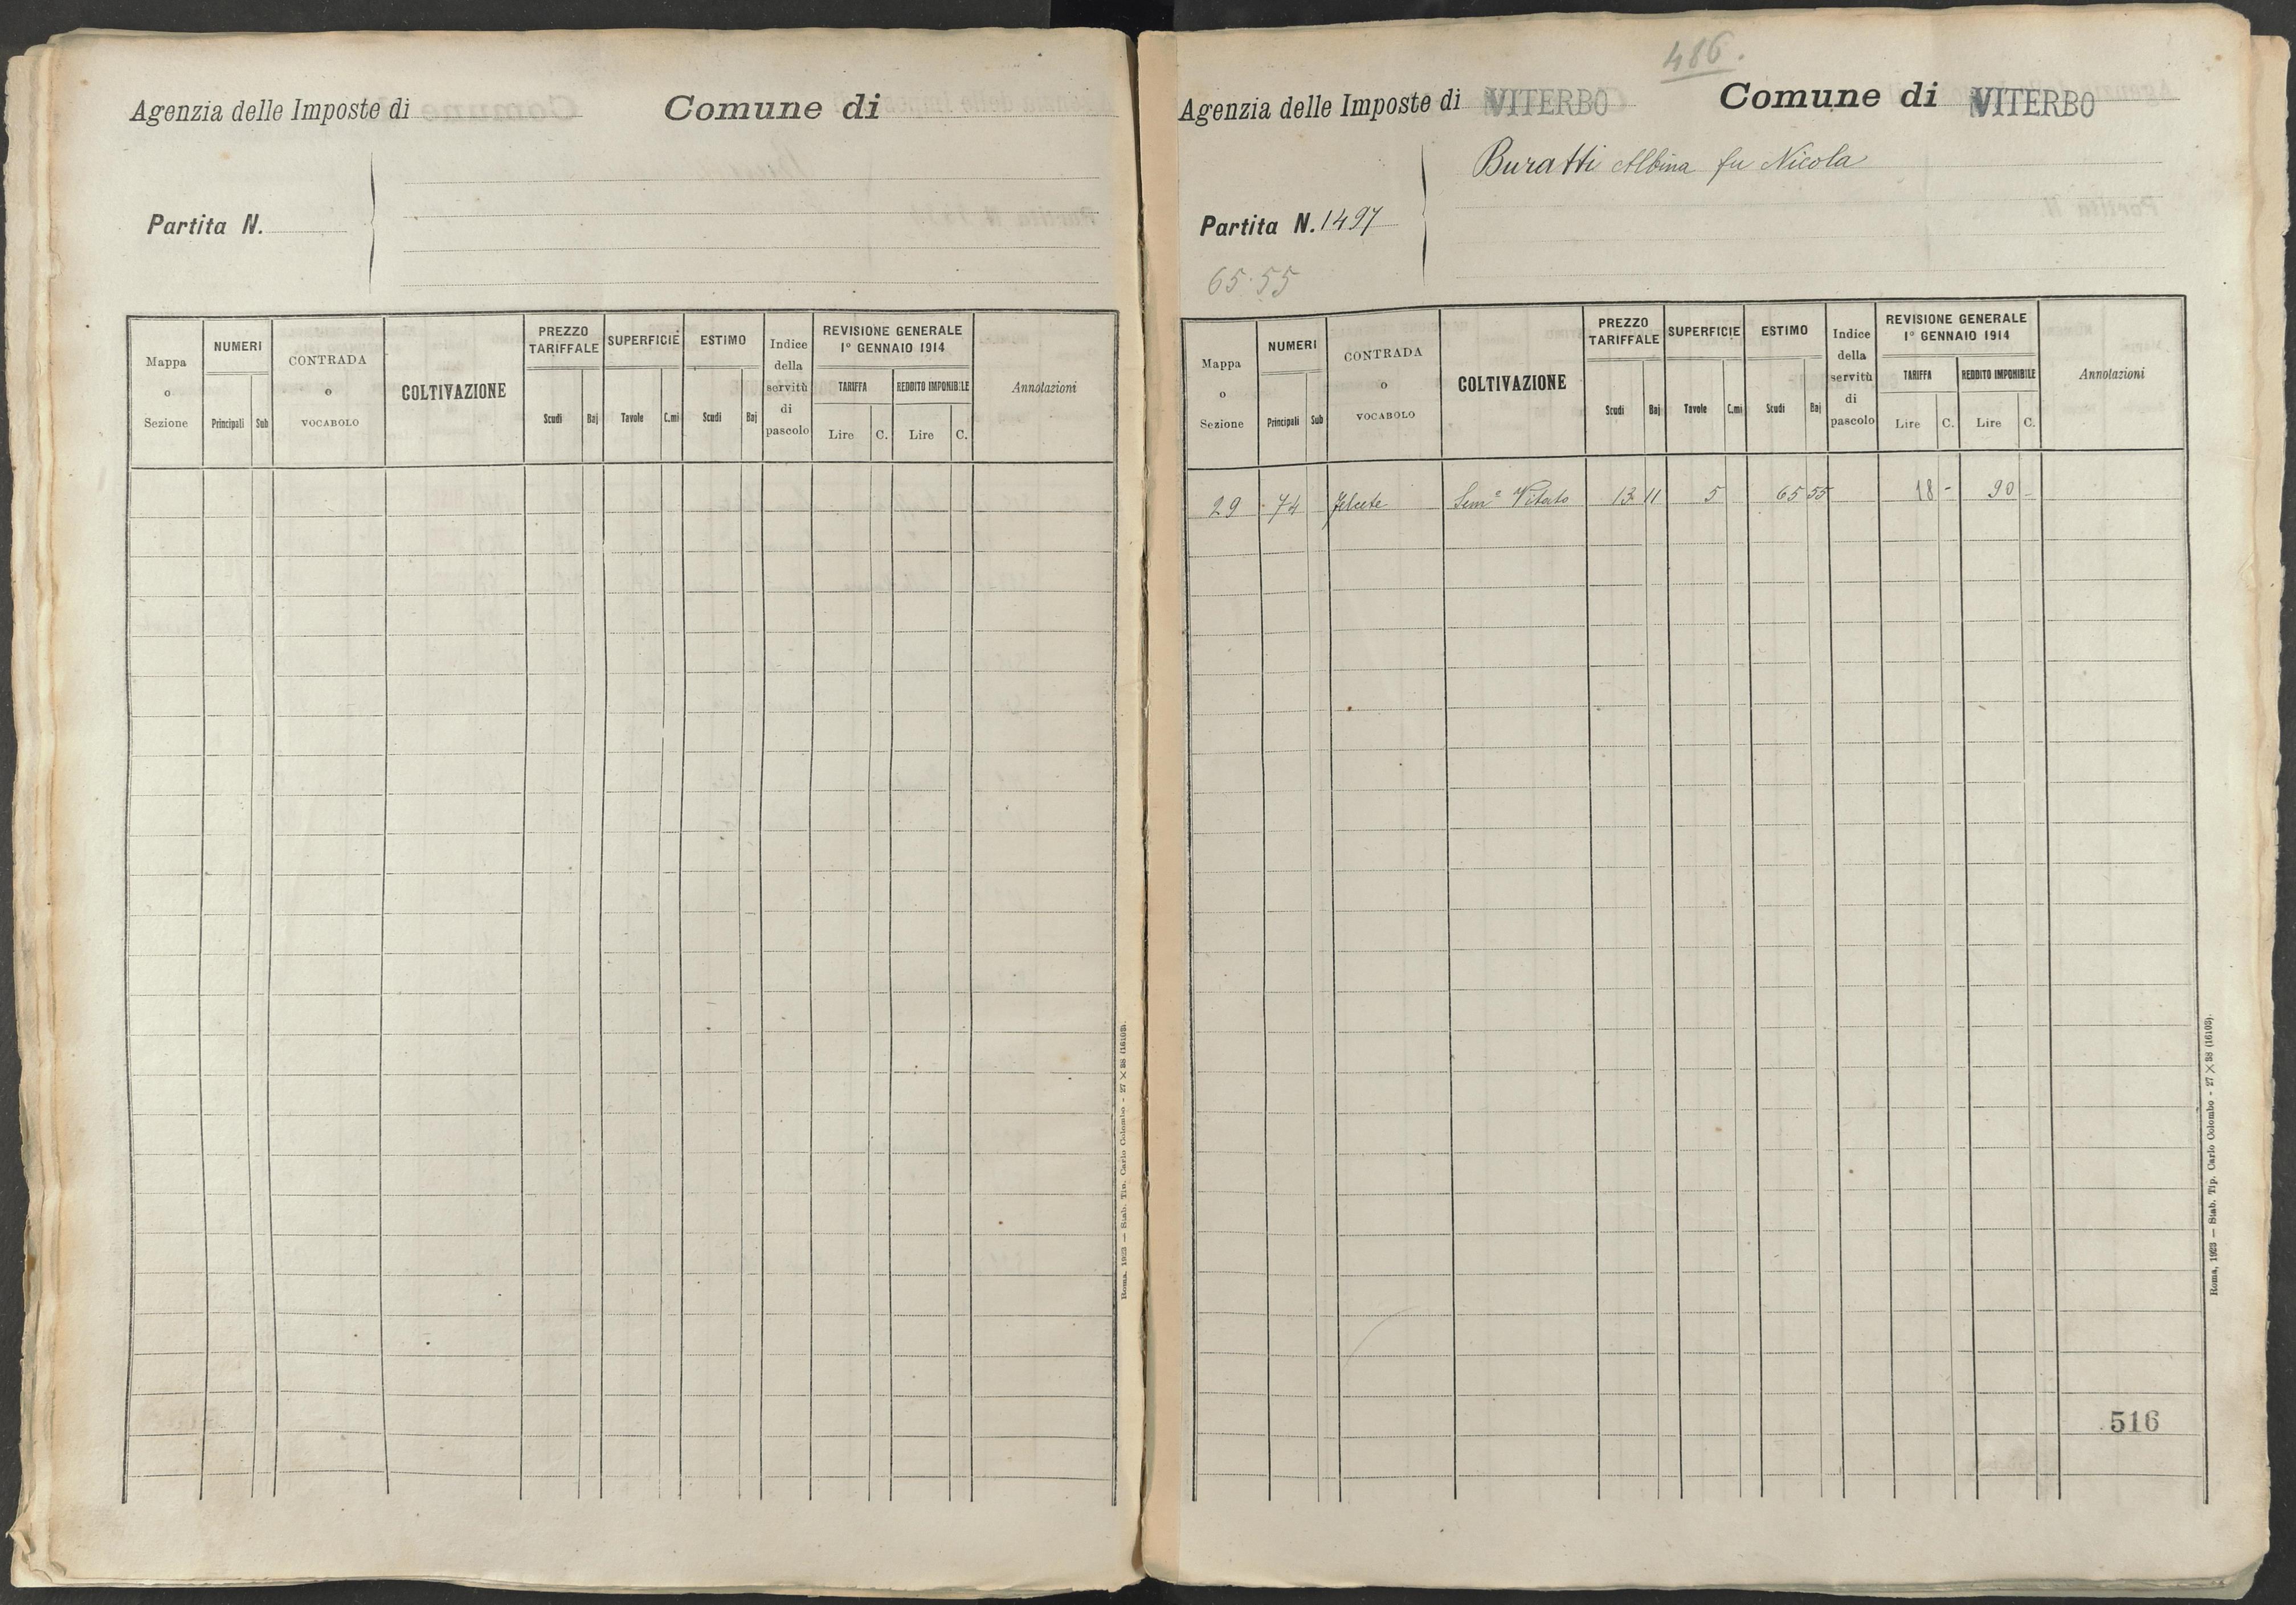 Agenzia delle Imposte di
Comune di
Partita N.
Mappa o Sezione
NUMERI
Principali
Sub
CONTRADA o VOCABOLO
COLTIVAZIONE
PREZZO TARIFFALE
Scudi
Baj
SUPERFICIE
Tavole
C.mi
ESTIMO
Scudi
Baj
Indice della servitù di pascolo
REVISIONE GENERALE
1° GENNAIO 1914
TARIFFA
Lire
C.
REDDITO IMPONIBILE
Lire
C.
Annotazioni
Roma, 1923 — Stab. Tip. Carlo Colombo - 27 × 38 (16103).
486.
Agenzia delle Imposte di VITERBO
Comune di VITERBO
Buratti Albina fu Nicola
Partita N. 1497
65.55
Mappa o Sezione
NUMERI
Principali
Sub
CONTRADA o VOCABOLO
COLTIVAZIONE
PREZZO TARIFFALE
Scudi
Baj
SUPERFICIE
Tavole
C.mi
ESTIMO
Scudi
Baj
Indice della servitù di pascolo
REVISIONE GENERALE
1° GENNAIO 1914
TARIFFA
Lire
C.
REDDITO IMPONIBILE
Lire
C.
Annotazioni
29 74 Sem° Vitato 13 11 5 65 55 18 - 90 -
516
Roma, 1923 — Stab. Tip. Carlo Colombo - 27 × 38 (16103).